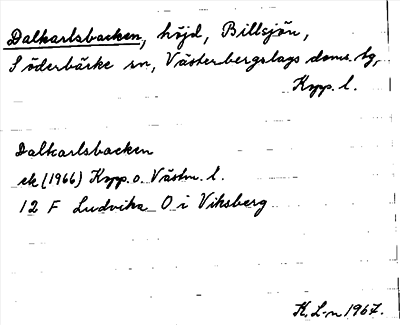 Dalkarlsbacken, höjd, Billsjön,
Söderbärke sn, Västerbergslags doms. tg,
Kopp. l.
Dalkarlsbacken
ek (1966) Kopp. o. Västm. l.
12 F Ludvika O i Viksberg
K. L-n 1967.